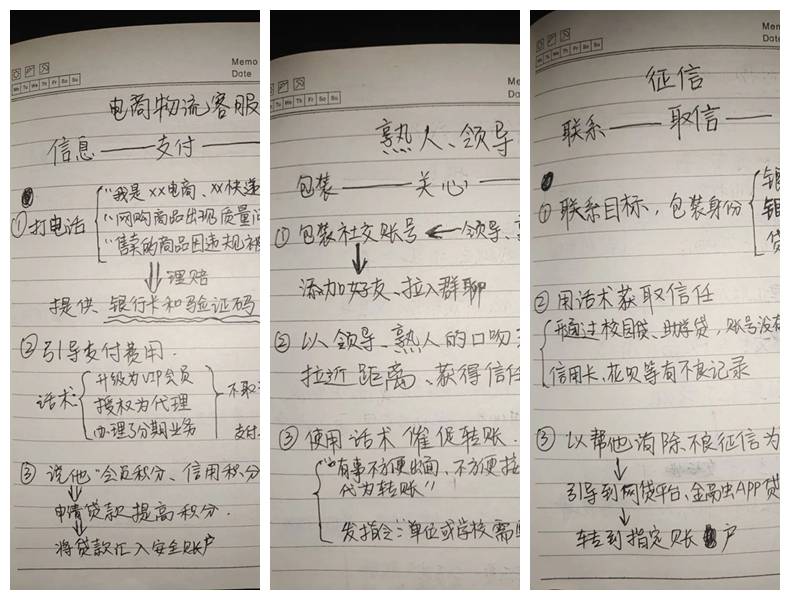 Memo
Date
Mo Tu We Th Fr Sa Su
电商物流客服
信息——支付——
①打电话
"我是xx电商、xx快递
"网购商品出现质量问
"售卖的商品因违规被
理赔
提供、银行卡和验证码
②引导支付费用.
话术
升级为VIP会员
授权为代理
办理了分期业务
不取
支付
③说他"会员积分、信用积分
申请贷款提高积分.
将贷款汇入安全账户
Me
Da
Mo Tu We Th Fr Sa Su
熟人、领导
包装——关心——
①包装社交账号←领导、
添加好友、拉入群聊
②以领导、熟人的口吻
拉近距离、获得信任
③使用话术催促转账.
"有事不方便出面,不方便接
代为转账"
发指令:单位或学校需
Mem
Date
Mo Tu We Th Fr Sa Su
征信
联系——取信——
①联系目标,包装身份
银
银
贷
②用话术获取信任
开通过校园贷、助学贷,账号没有
信用卡、花呗等有不良记录
③以帮他消除不良征信为
引导到网贷平台、金融APP贷
转到指定账户